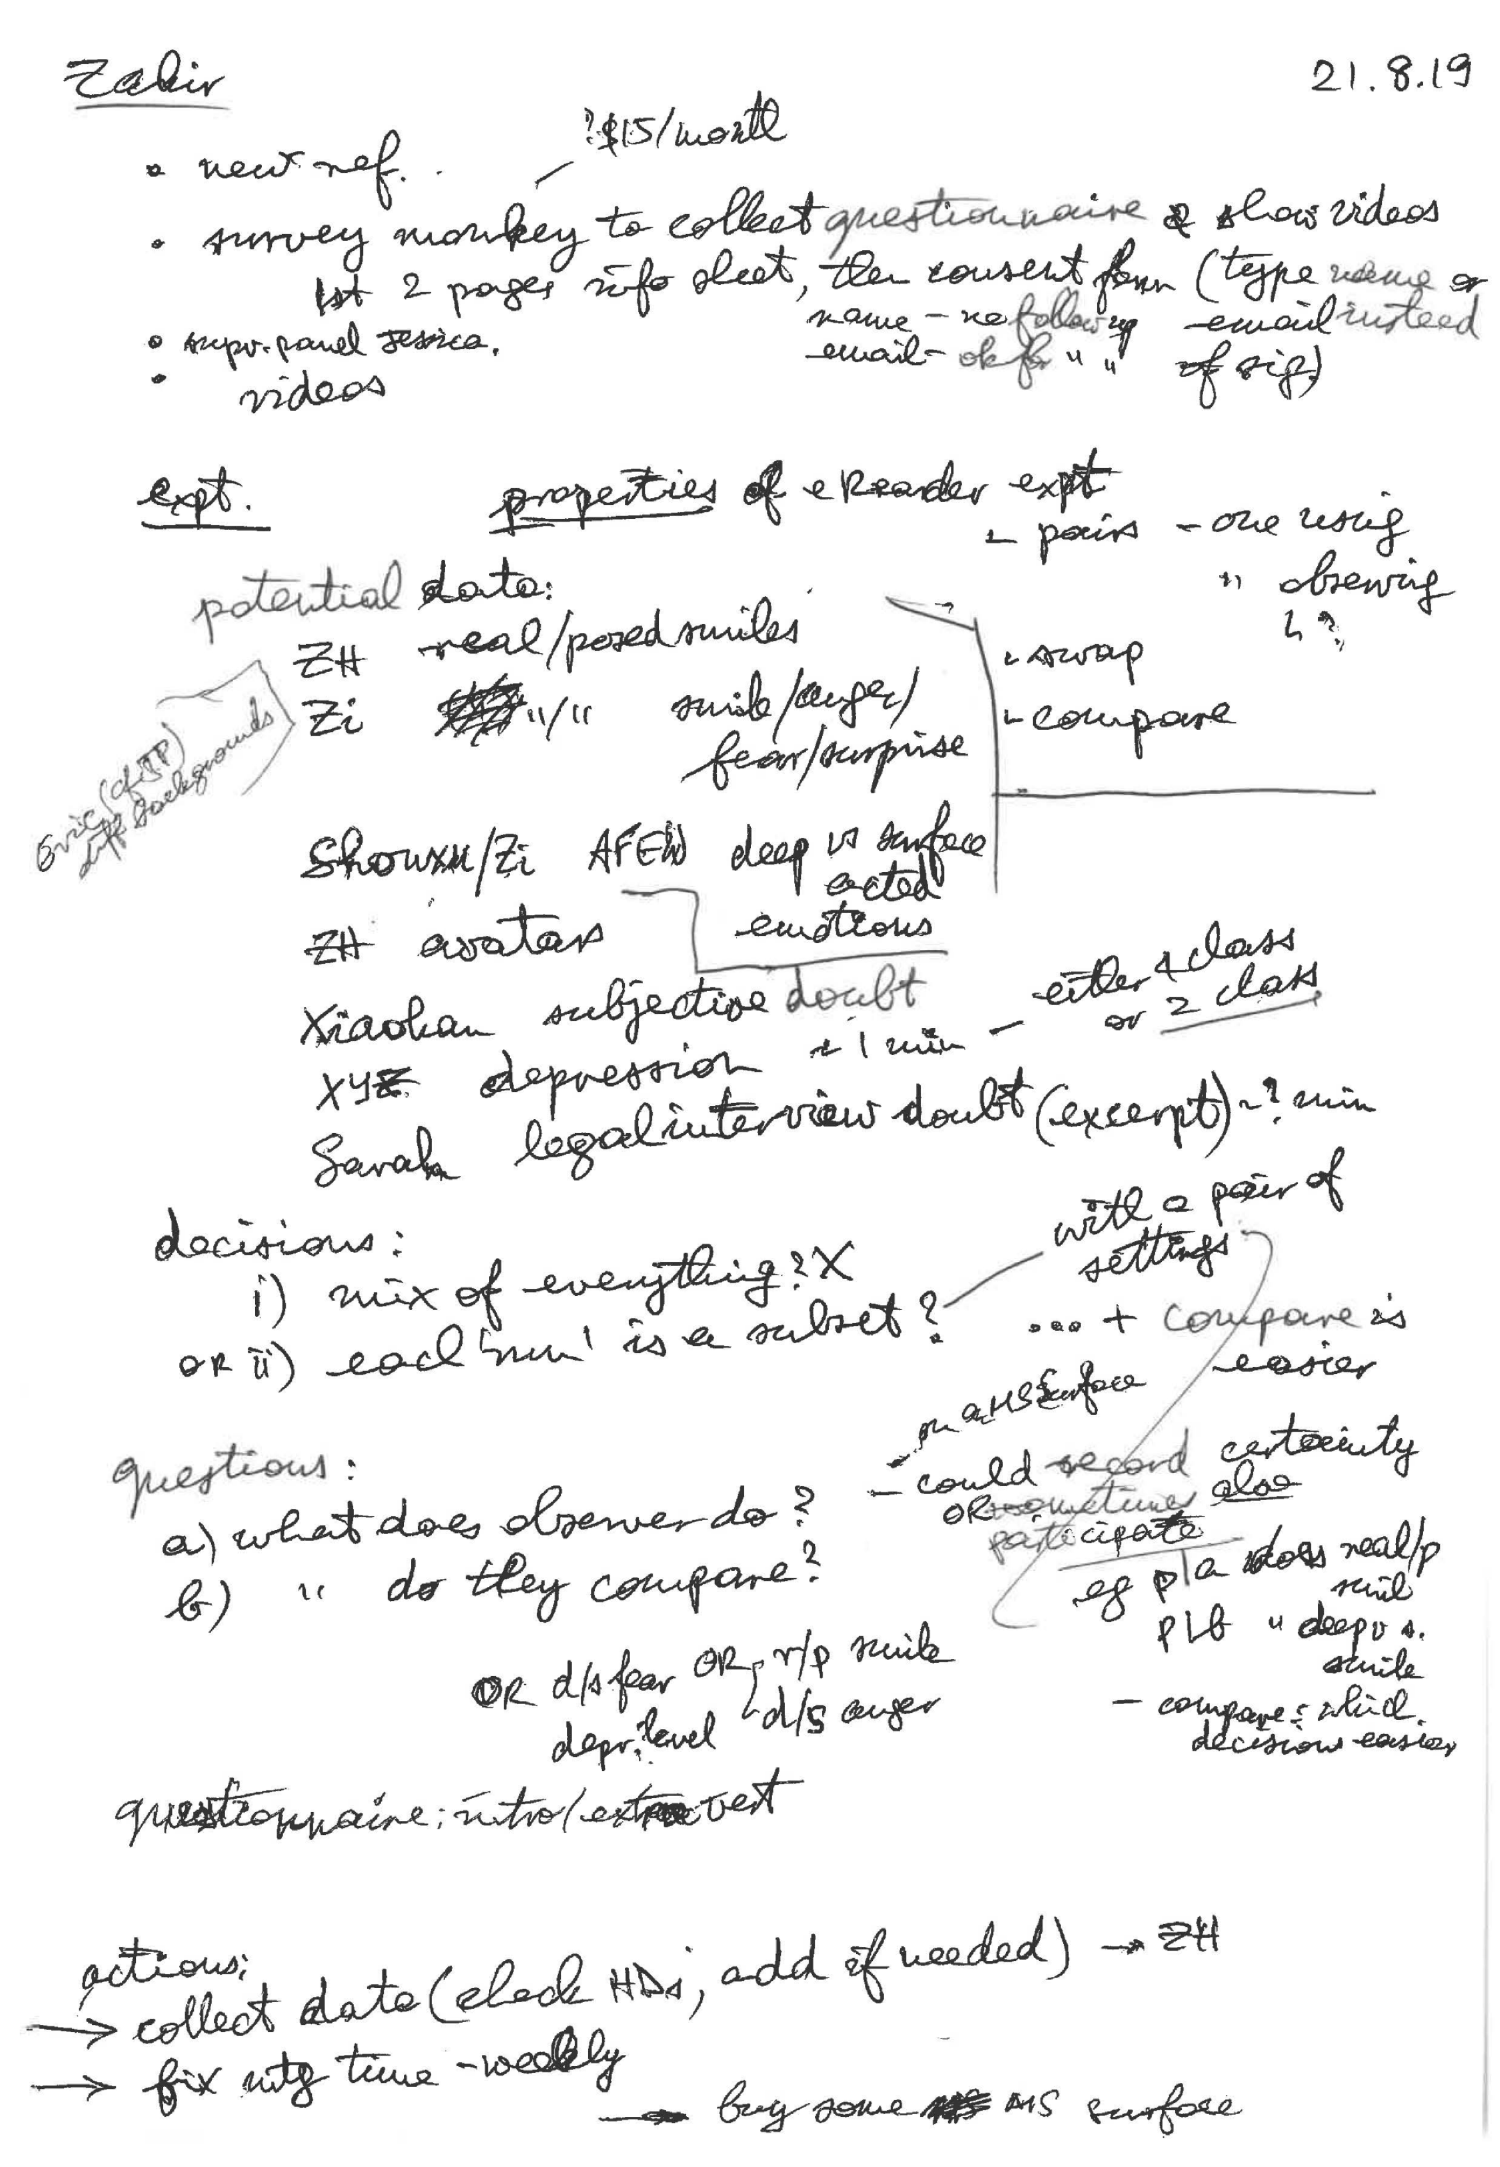 Zakir 21.8.19
• new ref. ?$15/month
• survey monkey to collect questionnaire & show videos
1st 2 pages info sheet, then consent form (type name or
name - no follow up - email instead
email - ok for " " of sig)
• superv. panel Jessica.
• videos
expt. properties of eReader expt
- pairs - one using
" observing
↳ ?
- swap
- compare
potential data:
ZH real/posed smiles
Zi "/" smile/anger/
fear/surprise
Eric (cf JP)
diff backgrounds
Shouxu/Zi AFEW deep vs surface
acted
emotions
ZH avatars
Xiaohan subjective doubt
XYZ depression ~ 1 min - either 4 class
or 2 class
Sarah legal interview doubt (excerpt) ~ ? min
decisions:
i) mix of everything? X
OR ii) each 'run' is a subset? with a pair of
settings
... + compare is
easier
questions:
a) what does observer do? - could record certainty
- on a MS Surface
OR sometimes also
participate
b) " do they compare?
eg p/a does real/p
smile
p/b " deep v s.
smile
- compare: which
decisions easier
OR d/s fear OR r/p smile
depr. level d/s anger
questionnaire: intro/extrovert
actions:
→ collect data (check HDs, add if needed) → ZH
→ fix mtg time - weekly
→ buy some MS surface